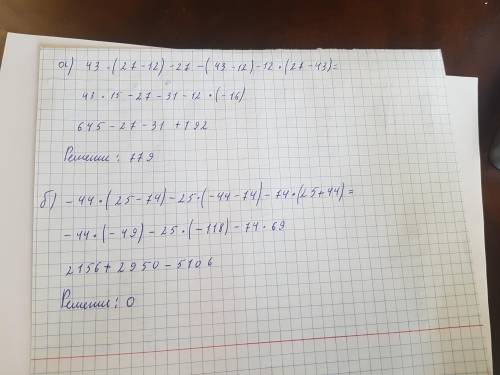 а) 43 · (27 - 12) - 27 - (43 - 12) - 12 · (27 - 43) =
43 · 15 - 27 - 31 - 12 · (-16)
645 - 27 - 31 + 192
Решение: 779
б) - 44 · (25 - 74) - 25 · (-44 - 74) - 74 · (25 + 44) =
- 44 · (-49) - 25 · (-118) - 74 · 69
2156 + 2950 - 5106
Решение: 0